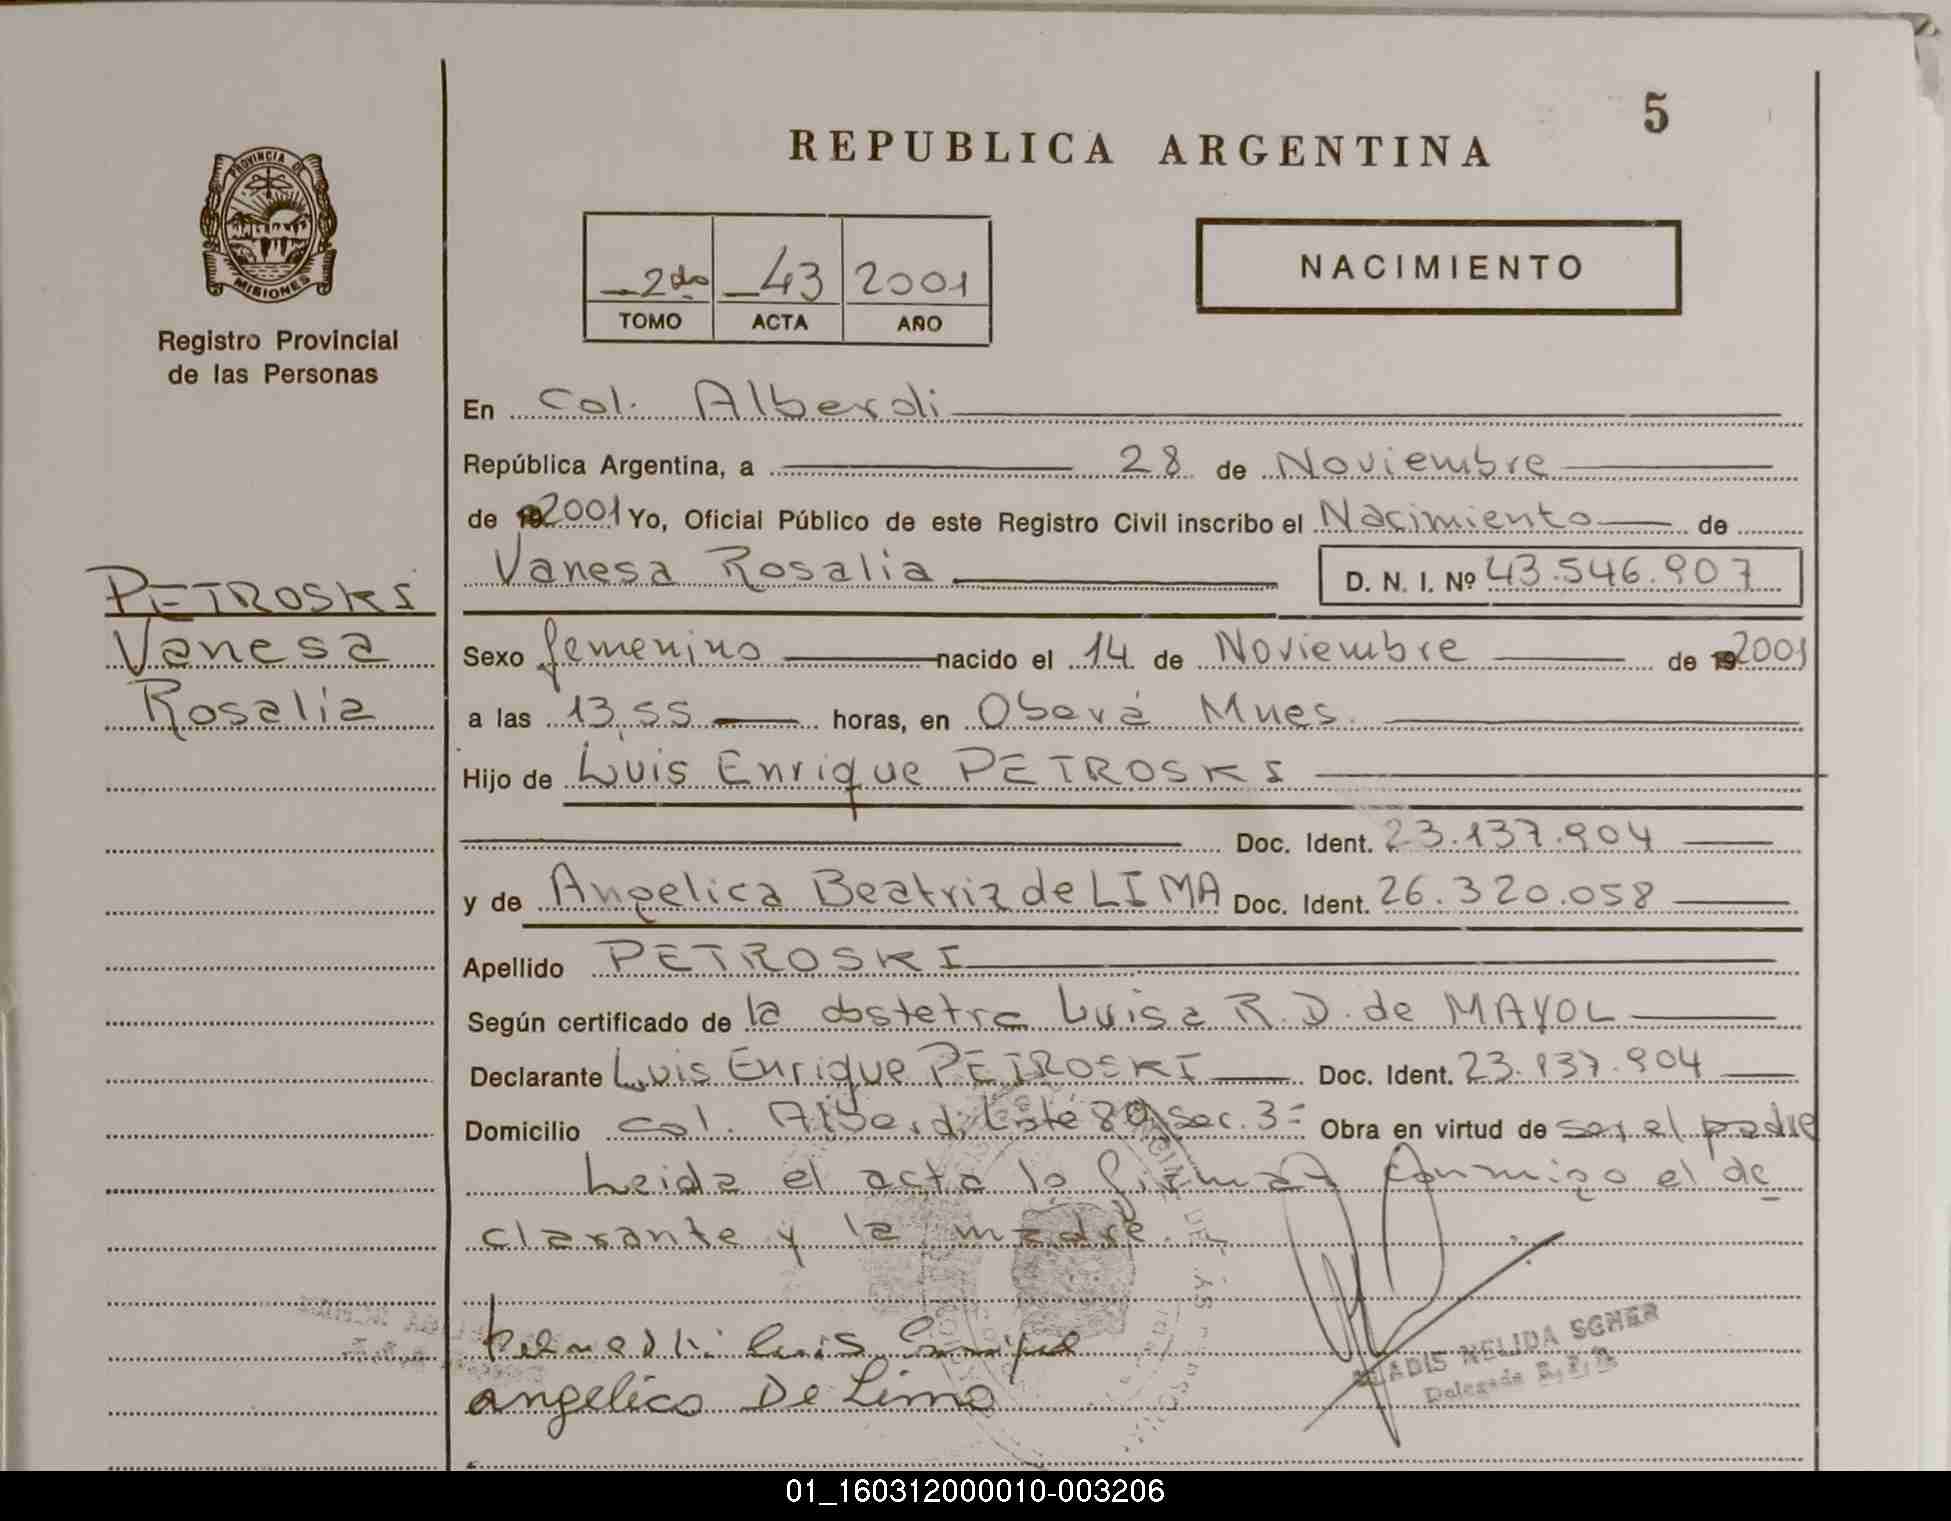 5
REPUBLICA ARGENTINA
PROVINCIA DE
MISIONES
Registro Provincial
de las Personas
2do 43 2001
TOMO ACTA AÑO
NACIMIENTO
En Col. Alberdi
República Argentina, a 28 de Noviembre
de 2001 Yo, Oficial Público de este Registro Civil inscribo el Nacimiento de
Vanesa Rosalia D. N. I. Nº 43.546.907
PETROSKI
Vanesa
Rosalia
Sexo femenino nacido el 14 de Noviembre de 2001
a las 13,55 horas, en Oberá Mnes.
Hijo de Luis Enrique PETROSKI
Doc. Ident. 23.137.904
y de Angelica Beatriz de LIMA Doc. Ident. 26.320.058
Apellido PETROSKI
Según certificado de la obstetra Luisa R. D. de MAYOL
Declarante Luis Enrique PETROSKI Doc. Ident. 23.137.904
Domicilio Col. Alberdi Lote 80 Sec. 3= Obra en virtud de ser el padre
Leida el acta la firman conmigo el de
clarante y la madre.
Luis
angelica De Lima
NELIDA SGHER
Delegada
01_160312000010-003206